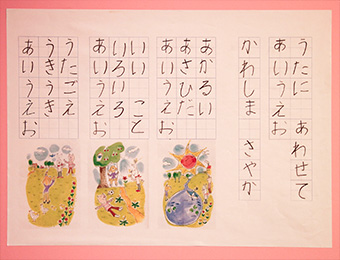 うたに あわせて
あいうえお
かわしま さやか
あかるい
あさひだ
あいうえお
いい こと
いろいろ
あいうえお
うたごえ
うきうき
あいうえお